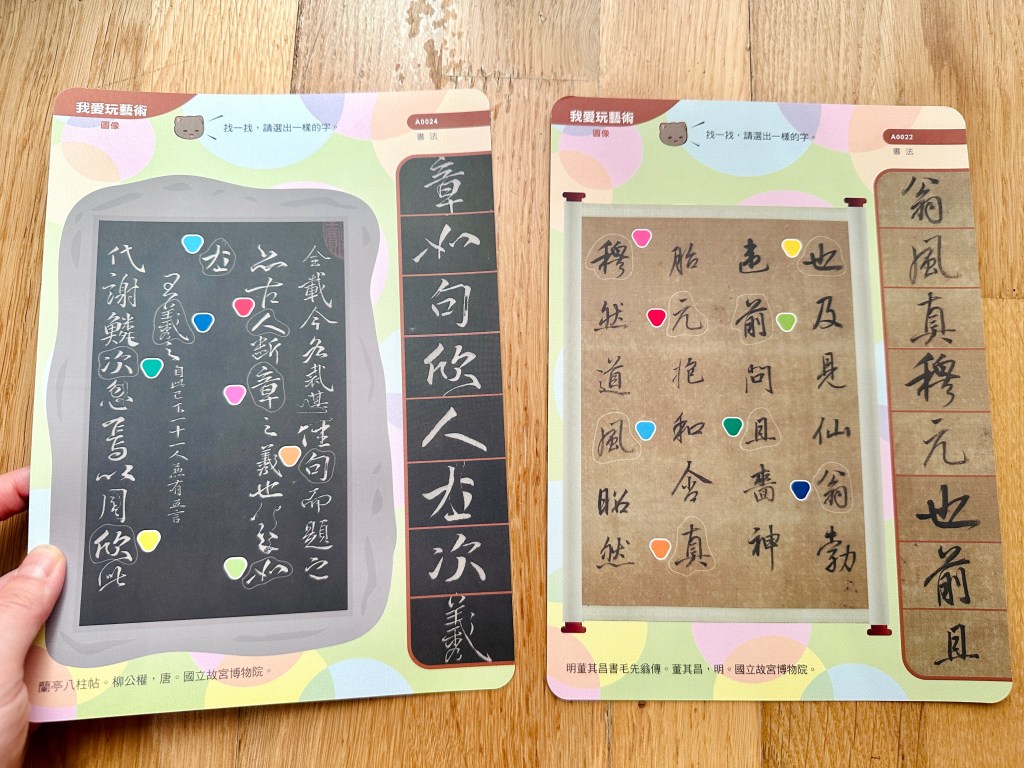 我愛玩藝術
圖像
找一找，請選出一樣的字。
A0024
書法
全載今各裁其佳句而題之
亦古人斷章之義也如
左
王羲之 自此已下十一人並有五言
代謝鱗次忽焉以周欣此
章
如
句
欣
人
左
次
羲
蘭亭八柱帖。柳公權，唐。國立故宮博物院。
我愛玩藝術
圖像
找一找，請選出一樣的字。
A0022
書法
也及見仙翁勃
前問且嗇神
胎元抱和含真
穆然道風昭然
翁
風
真
穆
元
也
前
且
明董其昌書毛先翁傳。董其昌，明。國立故宮博物院。